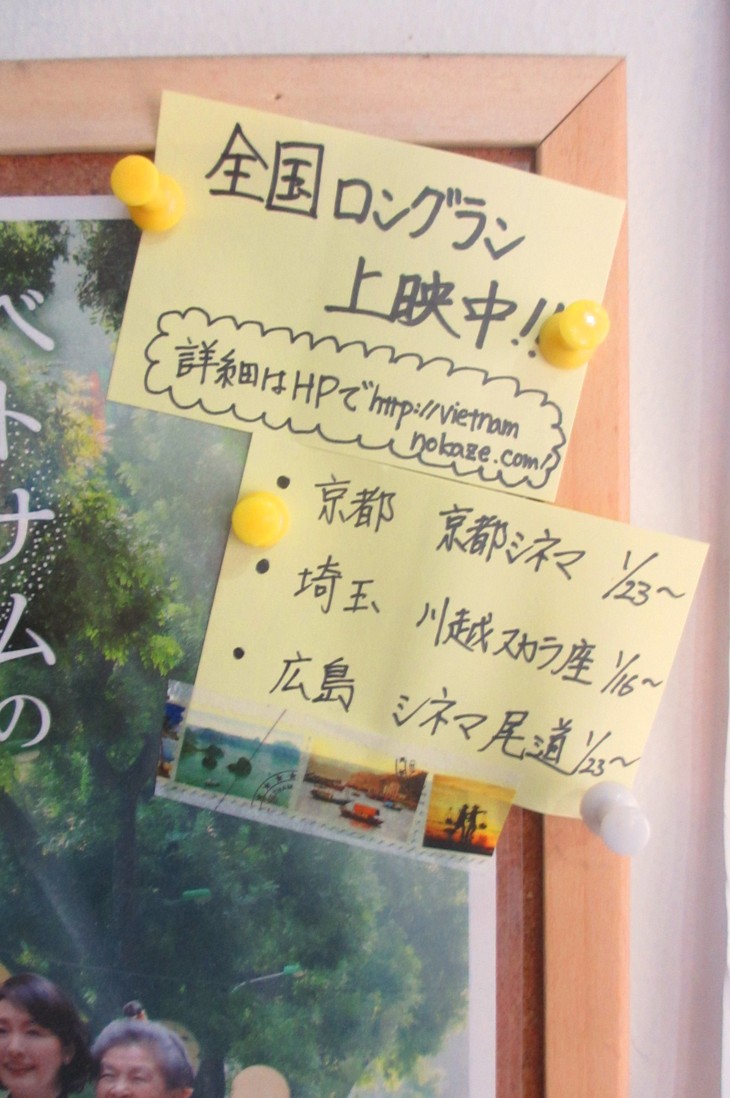 全国ロングラン
上映中!!
詳細はHPでhttp://vietnam
nokaze.com/
・京都 京都シネマ 1/23~
・埼玉 川越スカラ座 1/16~
・広島 シネマ尾道 1/23~
ベトナムの